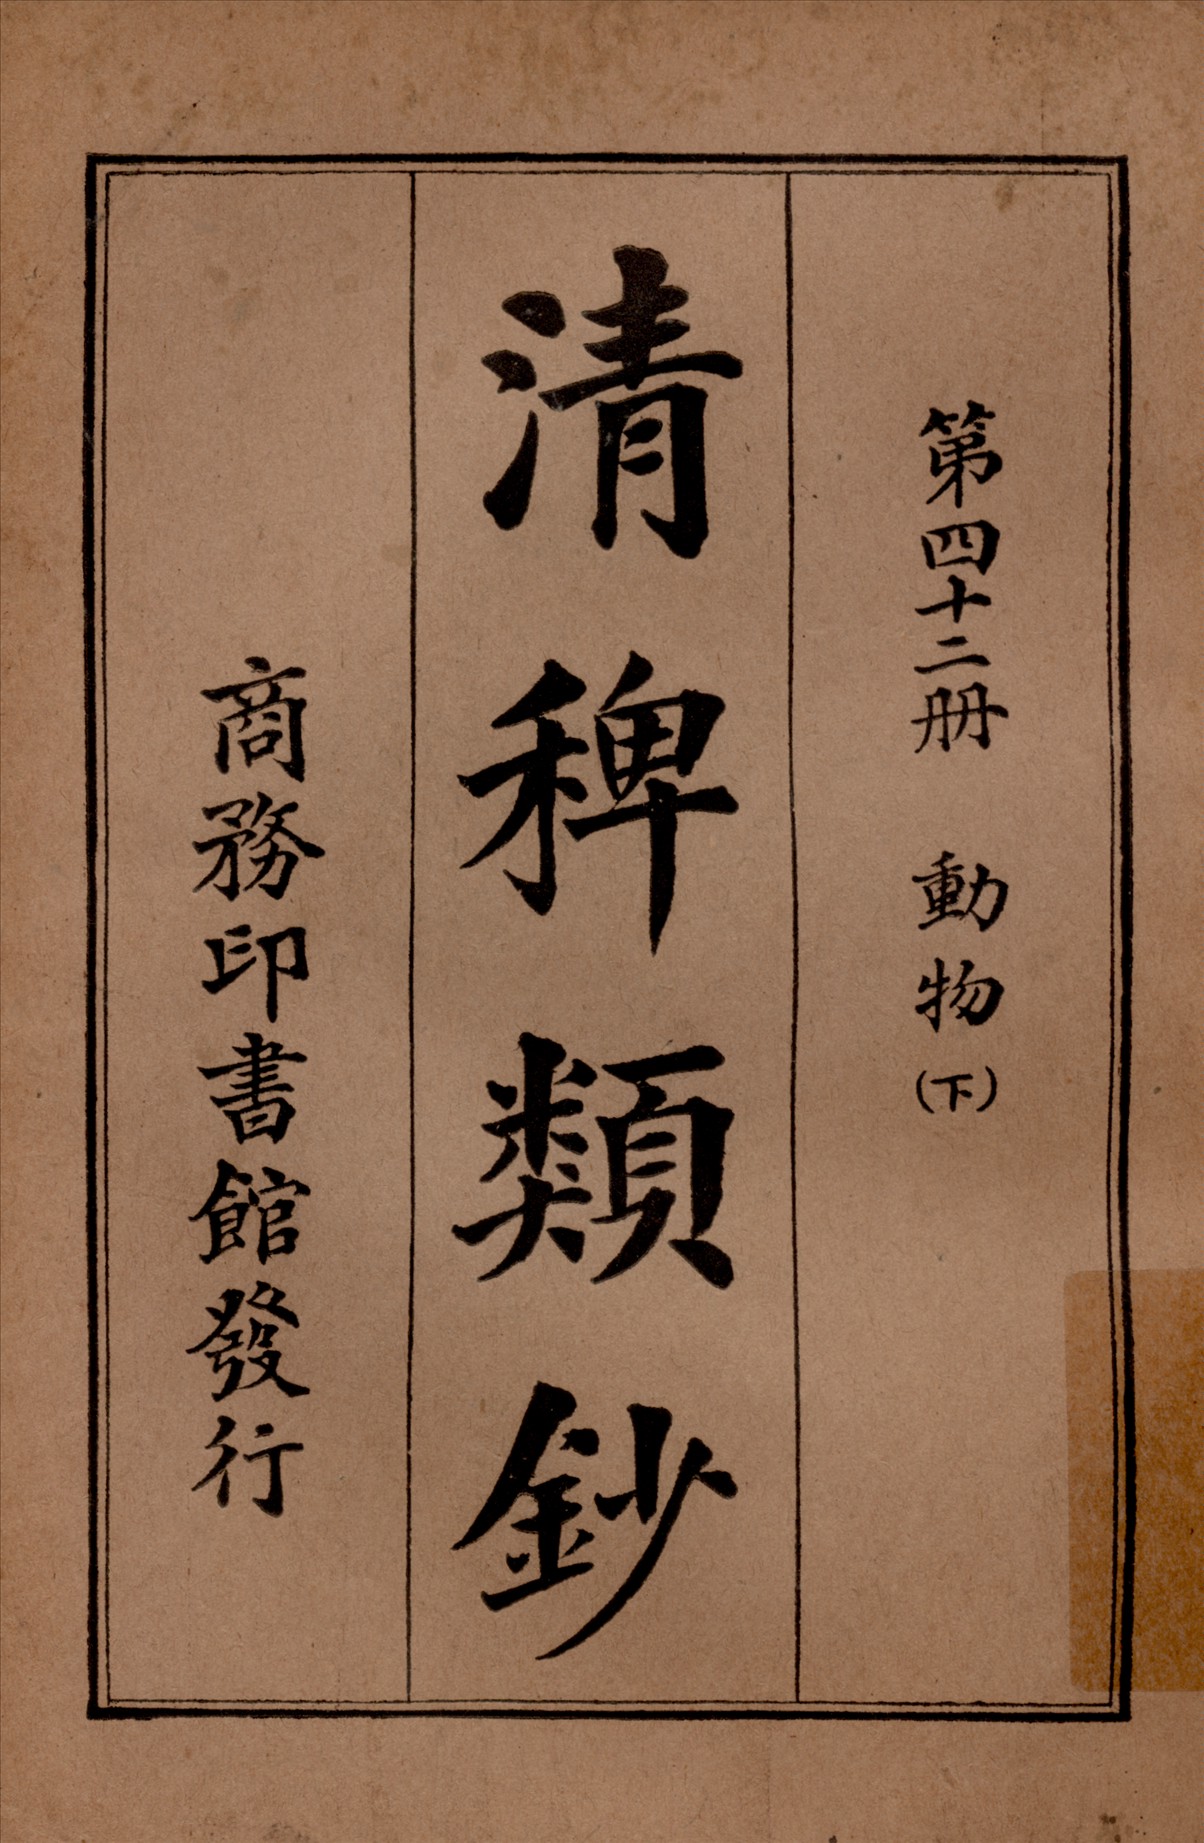 第四十二册 動物(下)
清稗類鈔
商務印書館發行